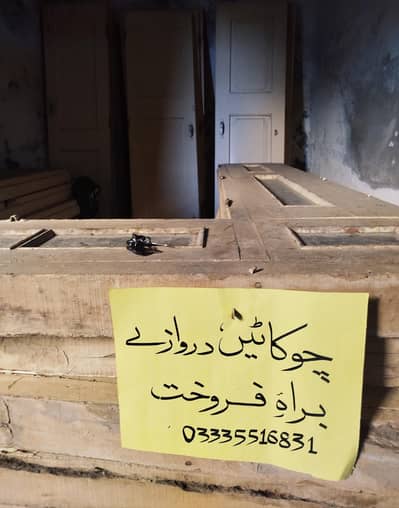 چوکاٹیں دروازے
براہِ فروخت
03335516831